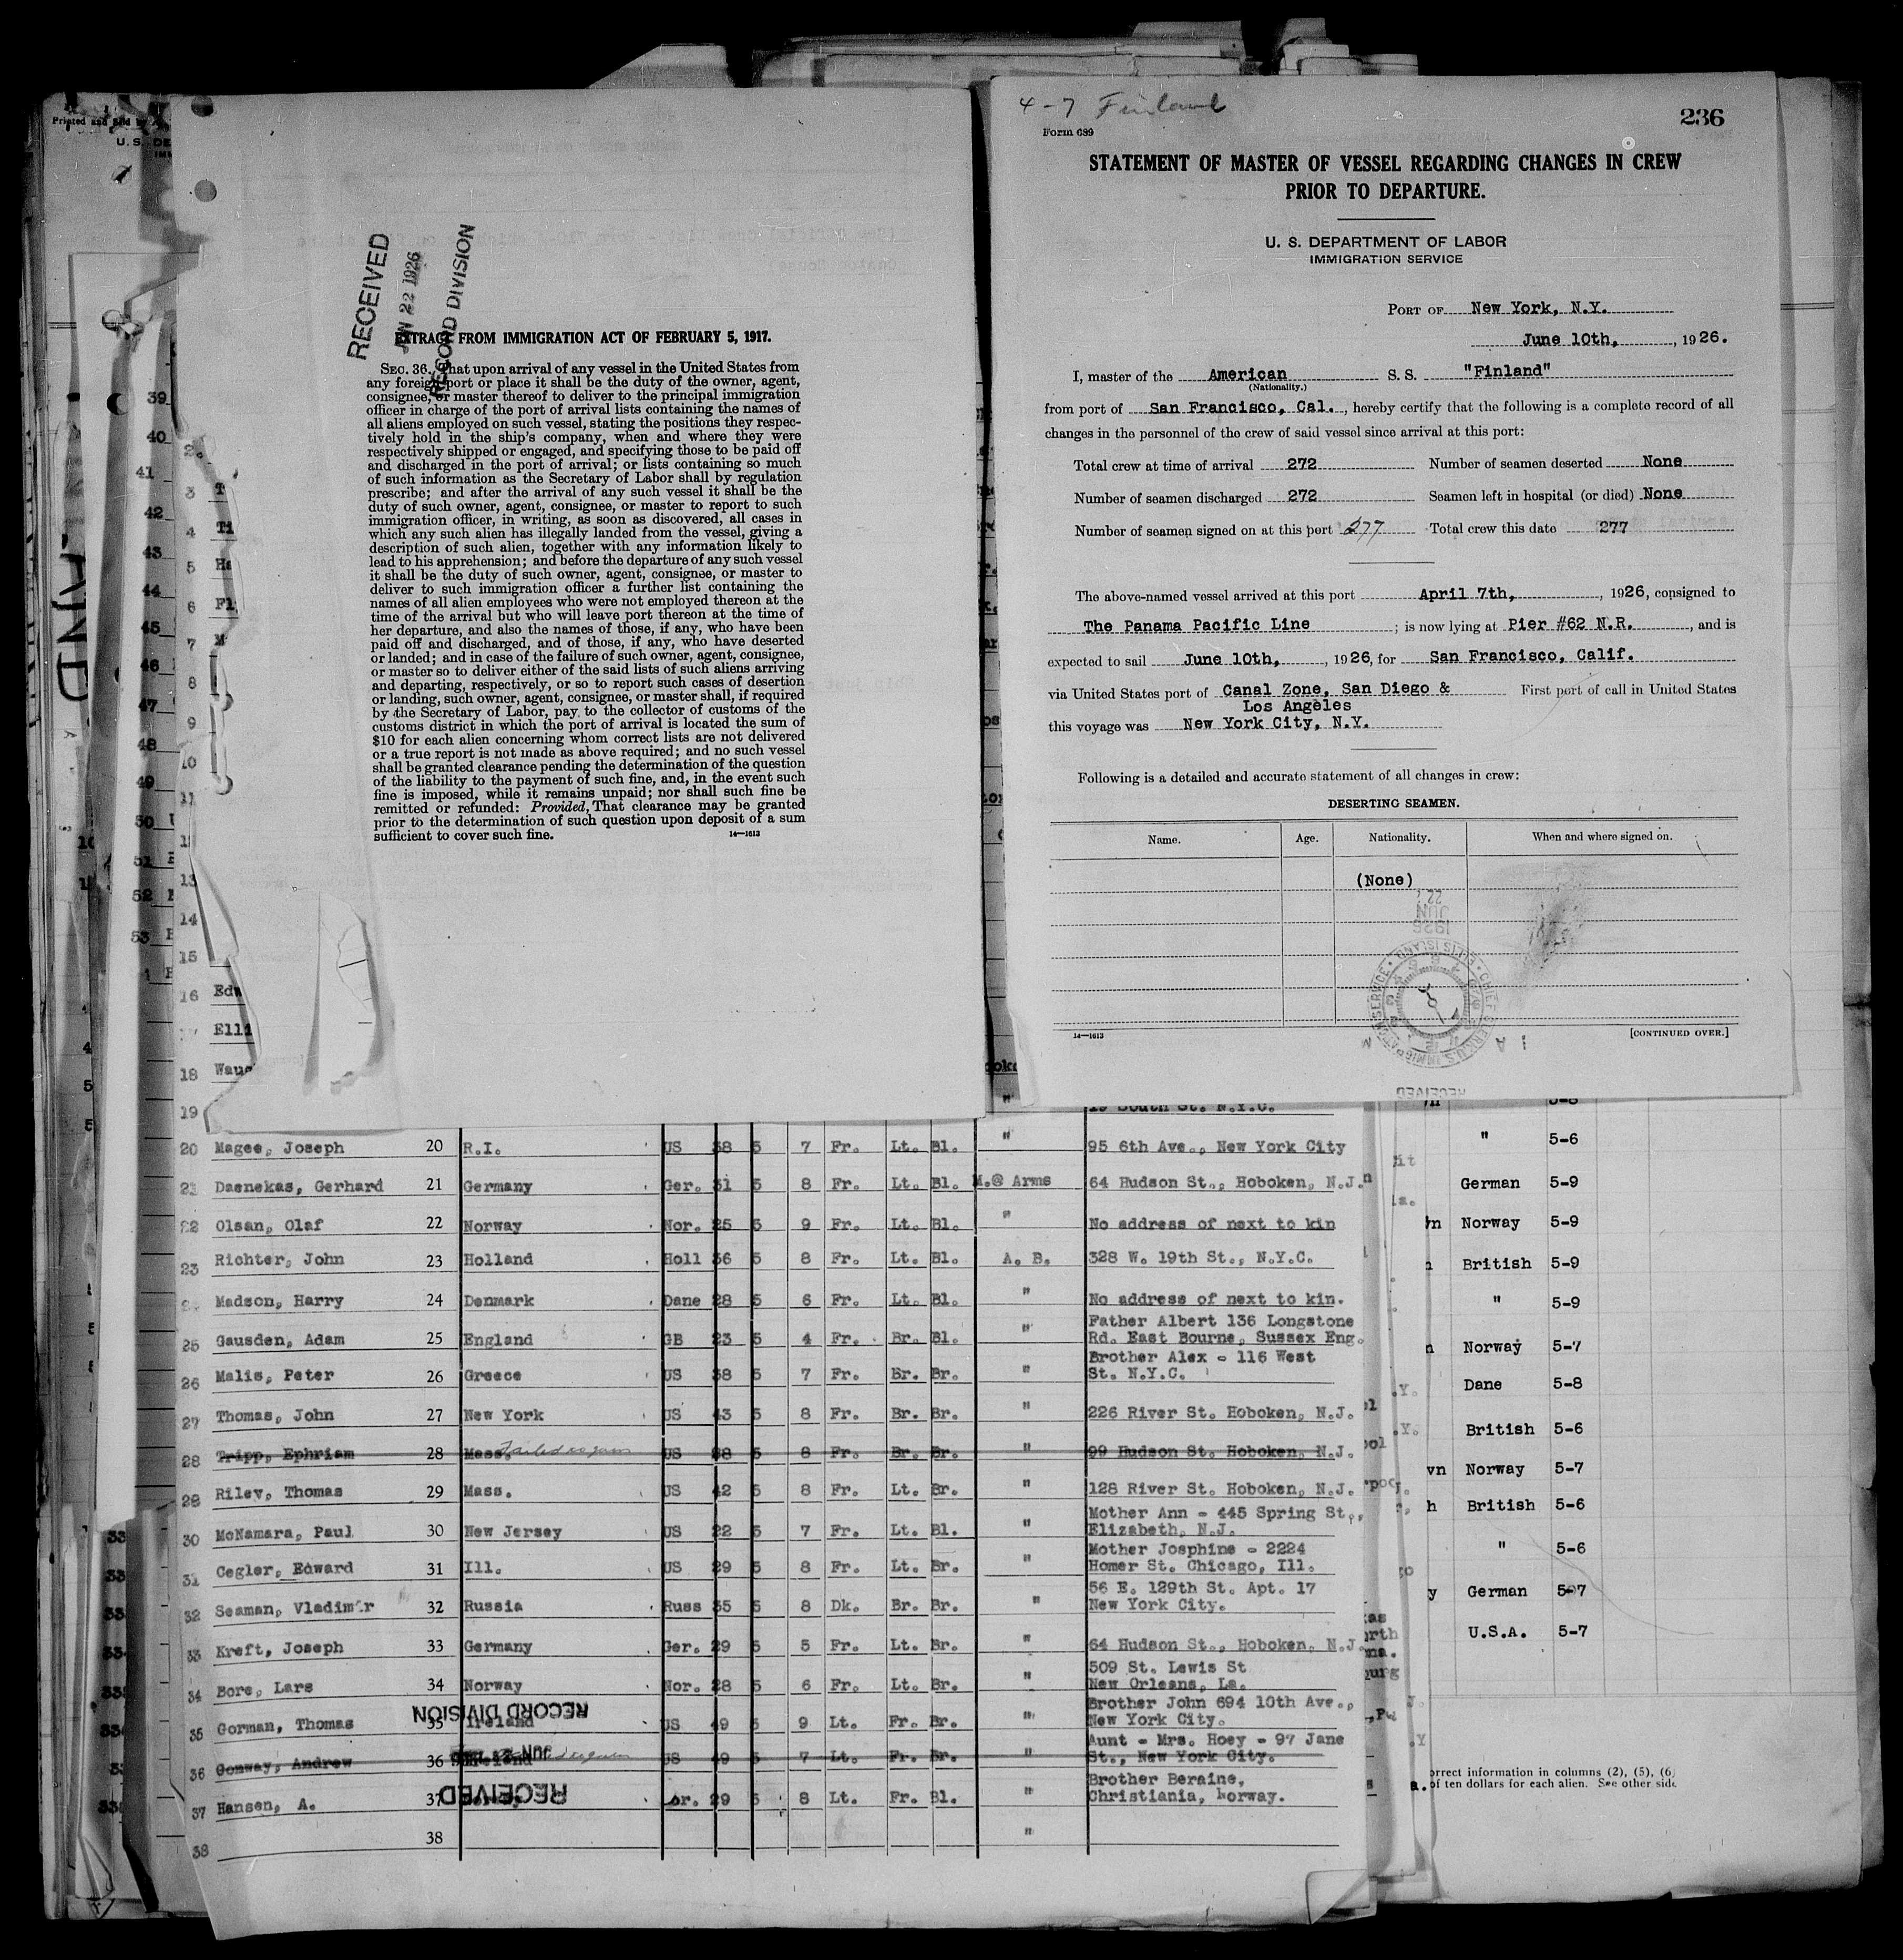 Printed and
U. S. DE
RECEIVED
JUN 22 1926
RECORD DIVISION
EXTRACT FROM IMMIGRATION ACT OF FEBRUARY 5, 1917.
SEC. 36. That upon arrival of any vessel in the United States from
any foreign port or place it shall be the duty of the owner, agent,
consignee, or master thereof to deliver to the principal immigration
officer in charge of the port of arrival lists containing the names of
all aliens employed on such vessel, stating the positions they respec-
tively hold in the ship's company, when and where they were
respectively shipped or engaged, and specifying those to be paid off
and discharged in the port of arrival; or lists containing so much
of such information as the Secretary of Labor shall by regulation
prescribe; and after the arrival of any such vessel it shall be the
duty of such owner, agent, consignee, or master to report to such
immigration officer, in writing, as soon as discovered, all cases in
which any such alien has illegally landed from the vessel, giving a
description of such alien, together with any information likely to
lead to his apprehension; and before the departure of any such vessel
it shall be the duty of such owner, agent, consignee, or master to
deliver to such immigration officer a further list containing the
names of all alien employees who were not employed thereon at the
time of the arrival but who will leave port thereon at the time of
her departure, and also the names of those, if any, who have been
paid off and discharged, and of those, if any, who have deserted
or landed; and in case of the failure of such owner, agent, consignee,
or master so to deliver either of the said lists of such aliens arriving
and departing, respectively, or so to report such cases of desertion
or landing, such owner, agent, consignee, or master shall, if required
by the Secretary of Labor, pay to the collector of customs of the
customs district in which the port of arrival is located the sum of
$10 for each alien concerning whom correct lists are not delivered
or a true report is not made as above required; and no such vessel
shall be granted clearance pending the determination of the question
of the liability to the payment of such fine, and, in the event such
fine is imposed, while it remains unpaid; nor shall such fine be
remitted or refunded: Provided, That clearance may be granted
prior to the determination of such question upon deposit of a sum
sufficient to cover such fine. 14—1613
4-7 Finland
236
Form 689
STATEMENT OF MASTER OF VESSEL REGARDING CHANGES IN CREW
PRIOR TO DEPARTURE.
U. S. DEPARTMENT OF LABOR
IMMIGRATION SERVICE
PORT OF New York, N.Y.
June 10th, , 1926.
I, master of the American S. S. "Finland"
(Nationality.)
from port of San Francisco, Cal. , hereby certify that the following is a complete record of all
changes in the personnel of the crew of said vessel since arrival at this port:
Total crew at time of arrival 272 Number of seamen deserted None
Number of seamen discharged 272 Seamen left in hospital (or died) None
Number of seamen signed on at this port 277 Total crew this date 277
The above-named vessel arrived at this port April 7th, , 1926, consigned to
The Panama Pacific Line ; is now lying at Pier #62 N.R. , and is
expected to sail June 10th, , 1926, for San Francisco, Calif.
via United States port of Canal Zone, San Diego & First port of call in United States
Los Angeles
this voyage was New York City, N.Y.
Following is a detailed and accurate statement of all changes in crew:
DESERTING SEAMEN.
Name. Age. Nationality. When and where signed on.
(None)
22
JUN
1926
14—1613 [CONTINUED OVER.]
RECEIVED
19 South St. N.Y.C.
20 Magee, Joseph 20 R.I. US 38 5 7 Fr. Lt. Bl. " 95 6th Ave., New York City
21 Daenekas, Gerhard 21 Germany Ger. 31 5 8 Fr. Lt. Bl. M.@ Arms 64 Hudson St., Hoboken, N.J.
22 Olsan, Olaf 22 Norway Nor. 25 5 9 Fr. Lt. Bl. " No address of next to kin
23 Richter, John 23 Holland Holl 36 5 8 Fr. Lt. Bl. A. B. 328 W. 19th St., N.Y.C.
Madson, Harry 24 Denmark Dane 28 5 6 Fr. Lt. Bl. " No address of next to kin.
25 Gausden, Adam 25 England GB 23 5 4 Fr. Br. Bl. " Father Albert 136 Longstone
Rd. East Bourne, Sussex Eng.
26 Malis, Peter 26 Greece US 38 5 7 Fr. Br. Br. " Brother Alex - 116 West
St. N.Y.C.
27 Thomas, John 27 New York US 43 5 8 Fr. Br. Br. " 226 River St. Hoboken, N.J.
28 Tripp, Ephriam 28 Mass. Failed to join US 38 5 8 Fr. Br. Br. " 99 Hudson St. Hoboken, N.J.
29 Riley, Thomas 29 Mass. US 42 5 8 Fr. Lt. Br. " 128 River St. Hoboken, N.J.
30 McNamara, Paul 30 New Jersey US 22 5 7 Fr. Lt. Bl. " Mother Ann - 445 Spring St.,
Elizabeth, N.J.
31 Cegler, Edward 31 Ill. US 29 5 8 Fr. Lt. Br. " Mother Josphine - 2224
Homer St. Chicago, Ill.
32 Seaman, Vladimir 32 Russia Russ 35 5 8 Dk. Br. Br. " 56 E. 129th St. Apt. 17
New York City.
33 Kreft, Joseph 33 Germany Ger. 29 5 5 Fr. Lt. Br. " 64 Hudson St., Hoboken, N.J.
34 Bore, Lars 34 Norway Nor. 28 5 6 Fr. Lt. Br. " 509 St. Lewis St
New Orleans, La.
RECORD DIVISION
35 Gorman, Thomas 35 Ireland US 49 5 9 Lt. Fr. Br. " Brother John 694 10th Ave.,
New York City.
36 Conway, Andrew 36 Ireland US 49 5 7 Lt. Fr. Br. " Aunt - Mrs. Hoey - 97 Jane
St., New York City.
RECEIVED
37 Hansen, A. 37 29 5 8 Lt. Fr. Bl. " Brother Beraine,
Christiania, Norway.
38 38 "
" 5-6
German 5-9
Norway 5-9
British 5-9
" 5-9
Norway 5-7
Dane 5-8
British 5-6
Norway 5-7
British 5-6
" 5-6
German 5-7
U.S.A. 5-7
orrect information in columns (2), (5), (6)
of ten dollars for each alien. See other side